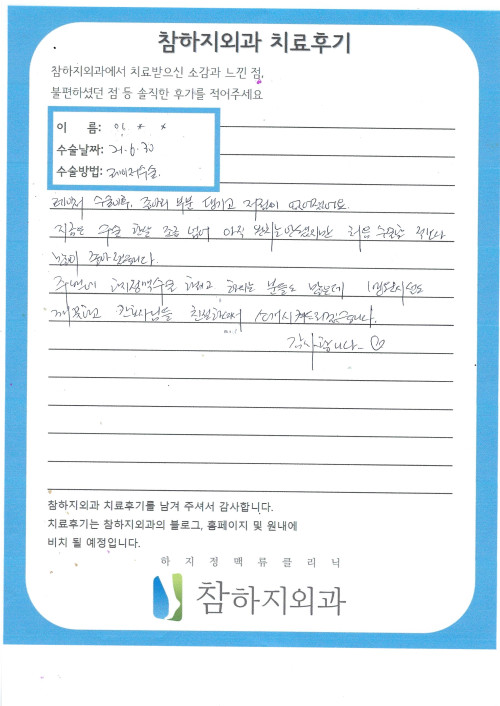 참하지외과 치료후기
참하지외과에서 치료받으신 소감과 느낀 점,
불편하셨던 점 등 솔직한 후가를 적어주세요
이 름: 안 * *
수술날짜: 21.6.30
수술방법: 레이저수술.
레이저 수술이후, 종아리 부분 댕기고 저림이 없어졌어요.
지금은 수술 한달 조금 넘어 아직 완치는 안됐지만 처음 수술날
많이 좋아졌습니다.
주변에 하지정맥수술 하려고 하시는 분들도 많은데 병원시설도
깨끗하고 간호사님들 친절하셔서 소개시켜드리겠습니다.
감사합니다- ♡
참하지외과 치료후기를 남겨 주셔서 감사합니다.
치료후기는 참하지외과의 블로그, 홈페이지 및 원내에
비치 될 예정입니다.
하지정맥류클리닉
참하지외과